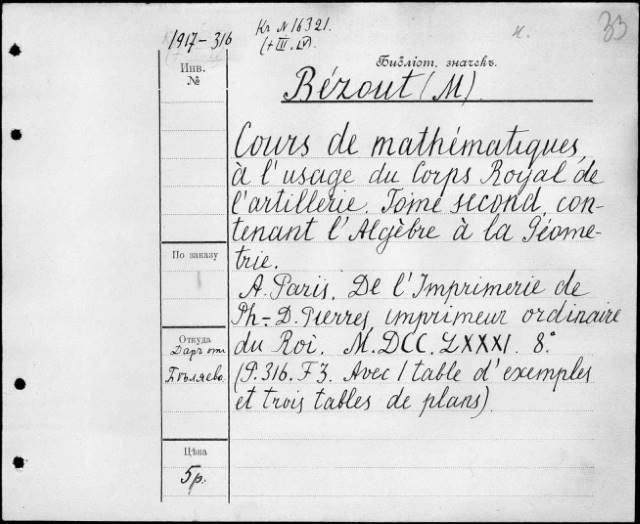 1917-316
Kr N 16321.
(+ III. LV).
ж.
33
Инв.
№
Библіот. значекъ.
Bézout (M)
Cours de mathématiques,
à l'usage du Corps Royal de
l'artillerie. Tome second, con-
tenant l'Algèbre à la Géome-
trie.
A. Paris. De l'Imprimerie de
Ph.-D. Pierres, imprimeur ordinaire
du Roi. M.DCC.LXXXI. 8°
(P.316. F3. Avec 1 table d'exemples
et trois tables de plans).
По заказу
Откуда
Даръ отъ
Бѣляево.
Цѣна
5р.